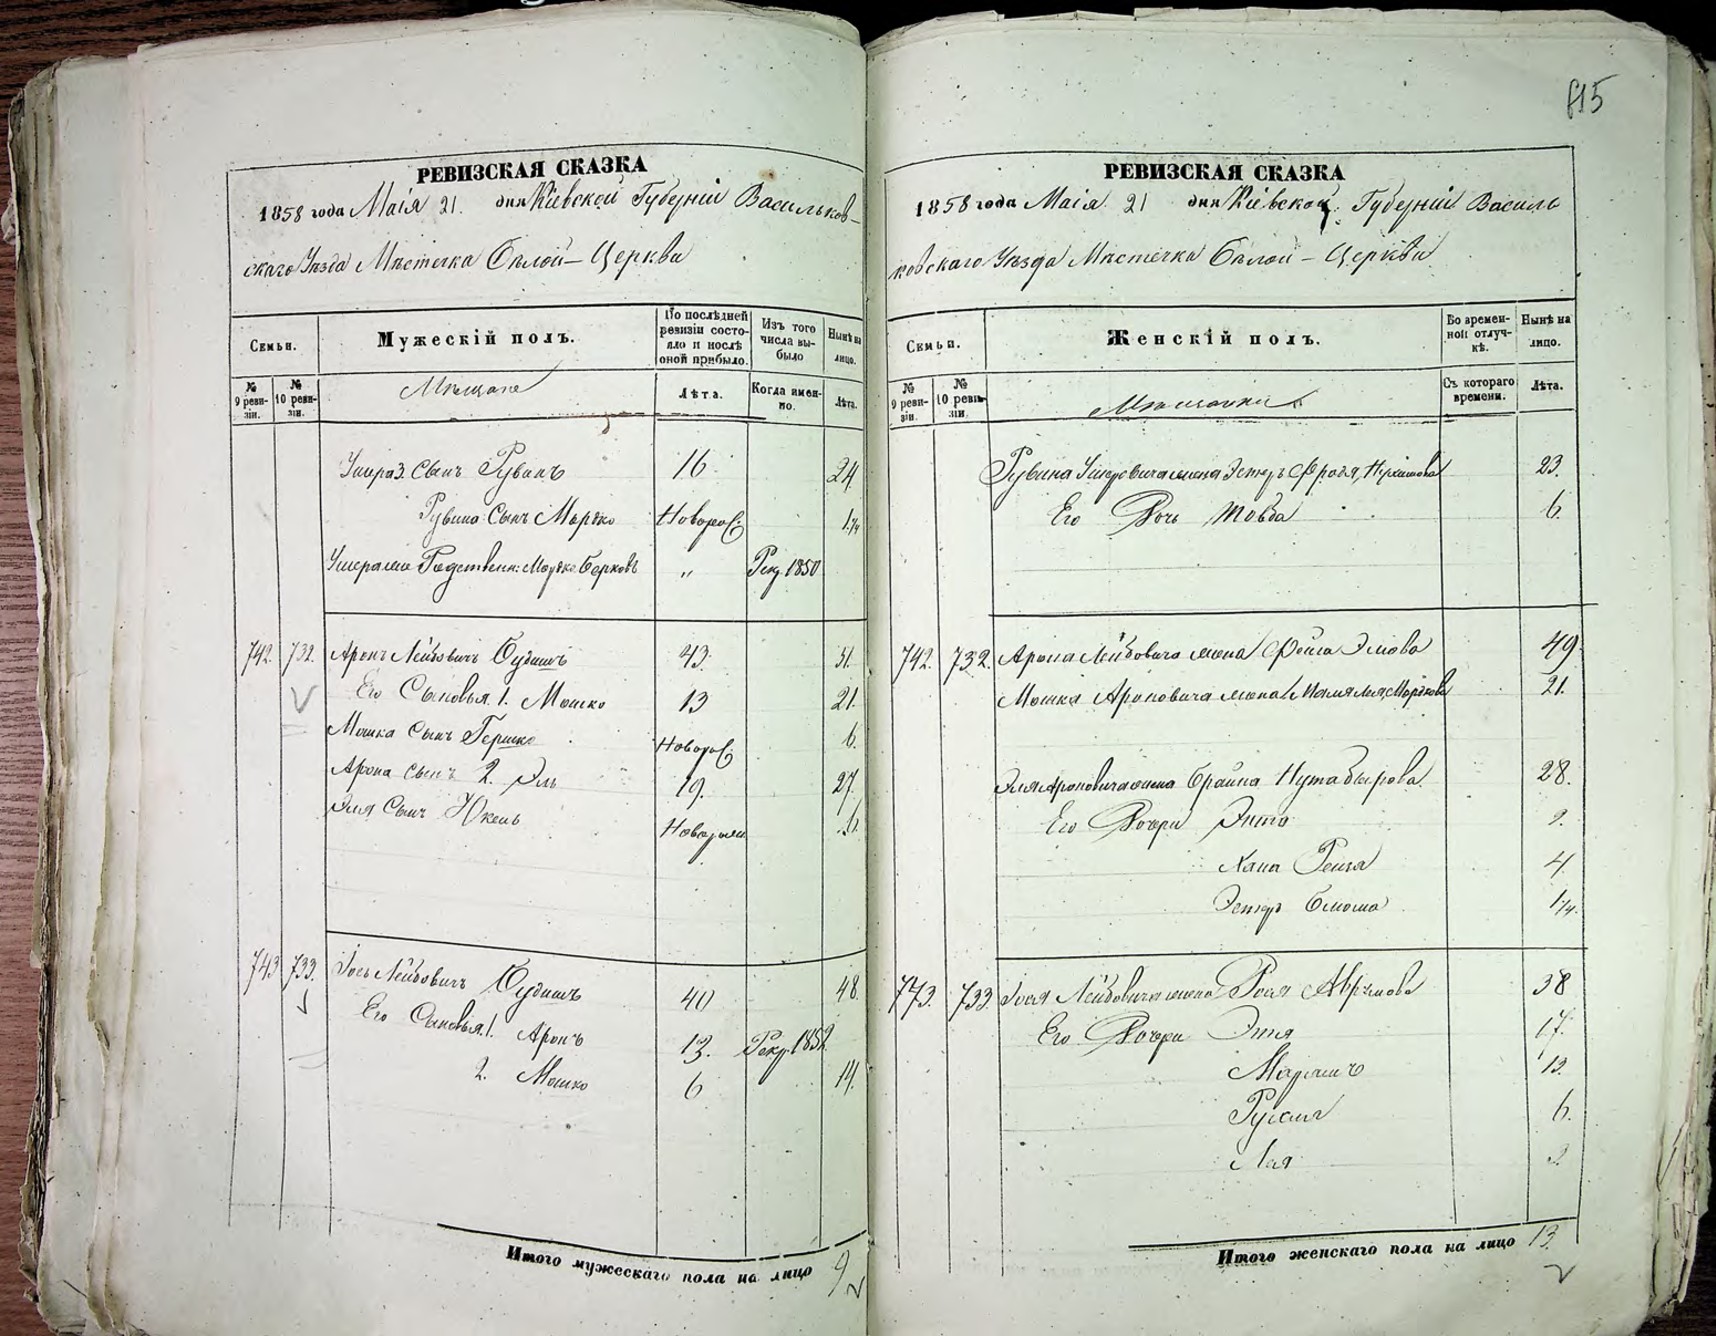 РЕВИЗСКАЯ СКАЗКА
1858 года Маія 21. дня Кіевской Губерніи Васильков-
скаго Уѣзда Мѣстечка Бѣлой-Церкви
Семьи.
Мужескій полъ.
По послѣдней ревизіи состо-
яло и послѣ оной прибыло.
Изъ того числа вы-
было
Нынѣ на лицо.
№ 9 реви-
зіи.
№ 10 реви-
зіи.
Мѣщане
Лѣта.
Когда имен-
но.
Лѣта.
сынъ Рувинъ 16 24
Рувина Сынъ Мордко Новорож: 1¼
Родственн: Мордко Берковъ " Рек. 1850
742. 732. Аронъ Лейбовичъ 43. 51.
Его Сыновья 1. Мошко 13 21.
Мошка Сынъ Гершко Новорож: 6.
Арона сынъ 2. Эль 19. 27.
Эля Сынъ Новорож 6.
743 733. Іось Лейбовичъ 40 48.
Его Сыновья 1. Аронъ 13. Рекр. 1852.
2. Мошко 6 14.
Итого мужескаго пола на лицо 9
815
РЕВИЗСКАЯ СКАЗКА
1858 года Маія 21 дня Кіевской Губерніи Василь
ковскаго Уѣзда Мѣстечка Бѣлой-Церкви
Семьи.
Женскій полъ.
Во времен-
ной отлуч-
кѣ.
Нынѣ на лицо.
№ 9 реви-
зіи.
№ 10 реви-
зіи.
Мѣщанки
Съ котораго времени.
Лѣта.
Рувина жена Эстеръ Фрося 23.
Его Дочь Товба 6.
742. 732. Арона Лейбовича жена Фейга 49
Мошка Ароновича жена Мордкова 21.
Эля Ароновича жена Брайна 28.
Его Дочери Энта 9.
Хана 4.
Эстеръ 1¼.
773. 733 Іося Лейбовича жена Рося Аврумова 38
Его Дочери Этя 17.
Маріамъ 13.
6.
Лея 2.
Итого женскаго пола на лицо 13.